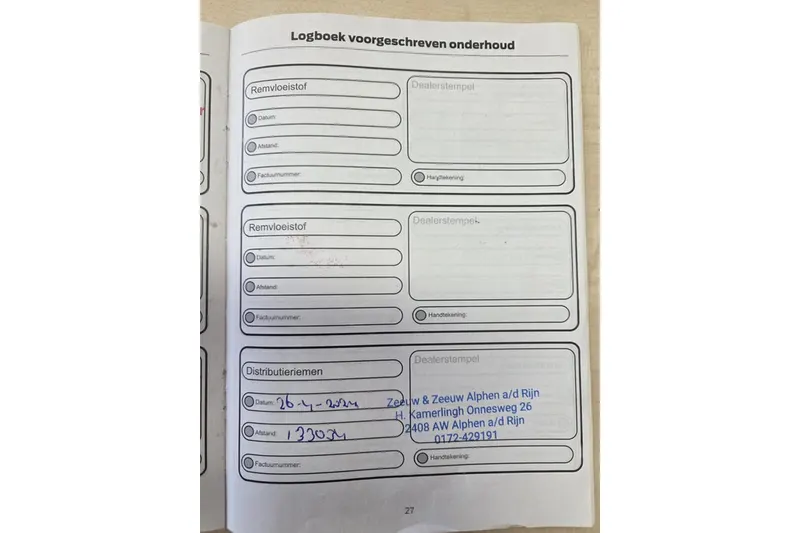 Logboek voorgeschreven onderhoud
Remvloeistof
Dealerstempel
Datum:
Afstand:
Factuurnummer:
Handtekening:
Remvloeistof
Dealerstempel
Datum:
Afstand:
Factuurnummer:
Handtekening:
Distributieriemen
Dealerstempel
Datum: 26-4-2024
Afstand: 133034
Factuurnummer:
Zeeuw & Zeeuw Alphen a/d Rijn
H. Kamerlingh Onnesweg 26
2408 AW Alphen a/d Rijn
0172-429191
Handtekening:
27